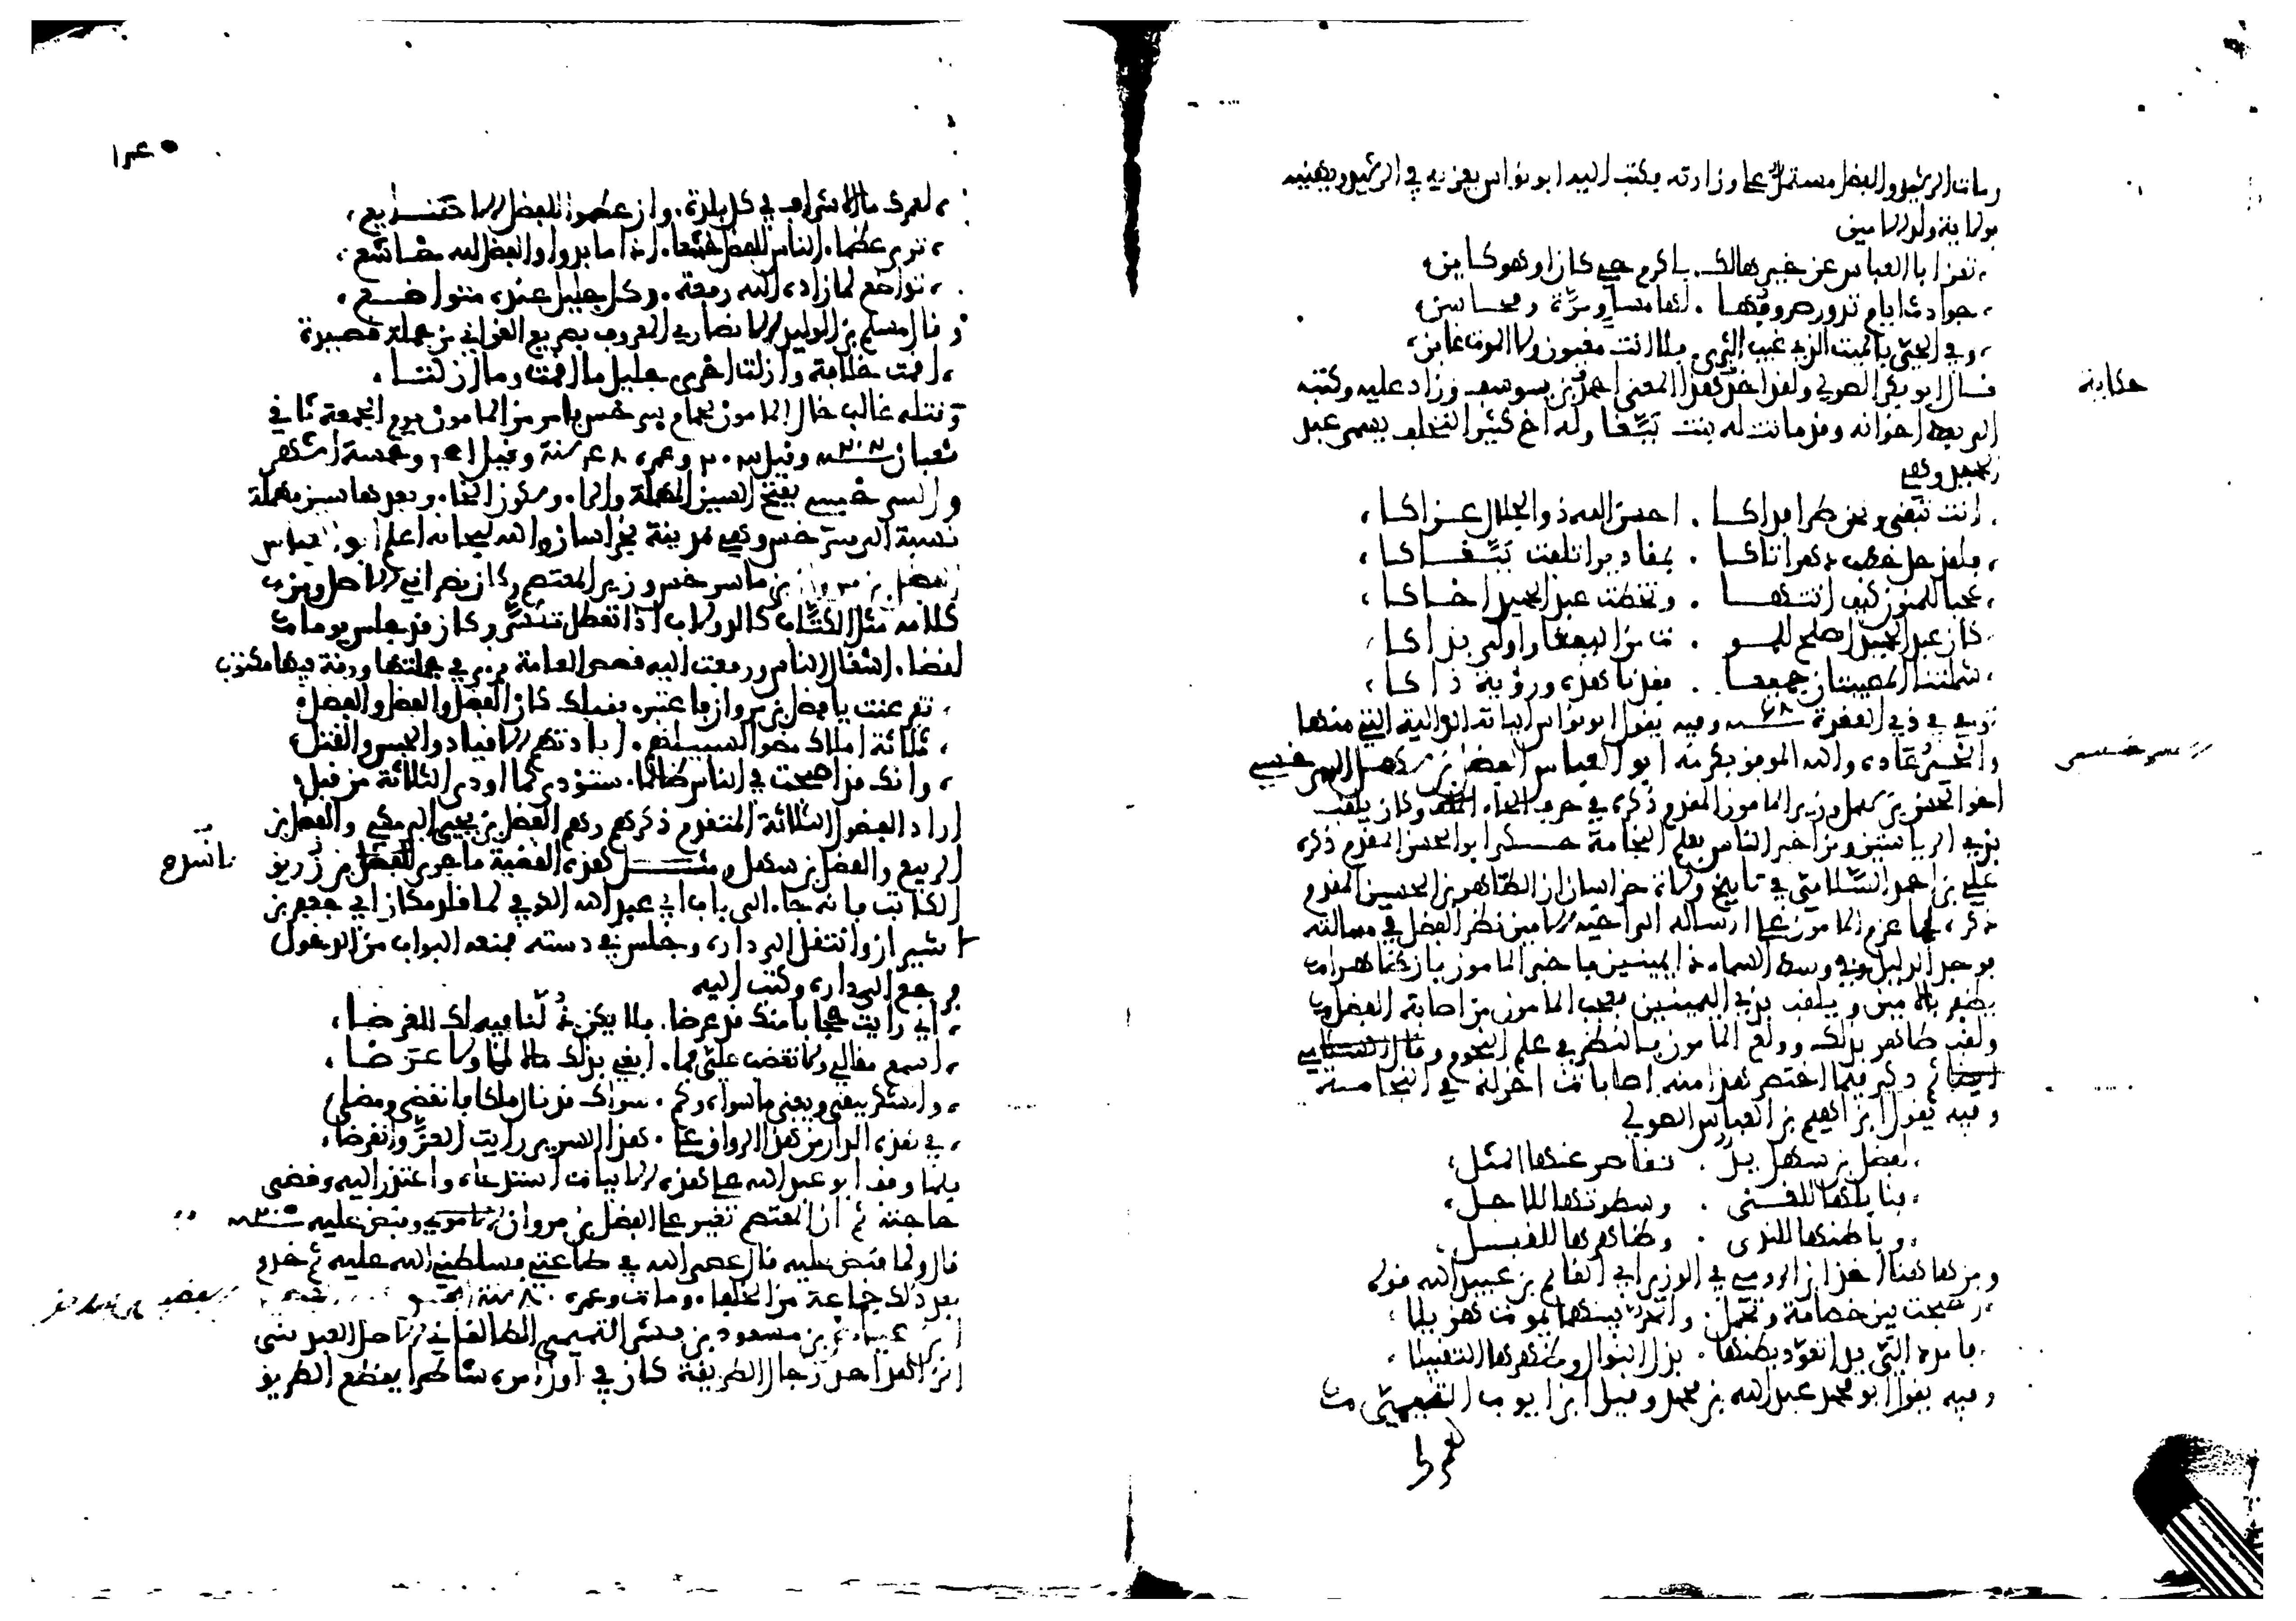 ومات الرشيد والفضل مستمر على وزارته فكتب اليه ابو نواس يعزيه في الرشيد ويهنيه
بولاية ولده الامين
تعز ابا العباس عن خير هالك باكرم حي كان او هو كاين
حوادث ايام تدور صروفها لها مساو مرّة ومحاسن
وفي الحيّ بالميت الذي غيب الثرى فلا انت مغبون ولا الموت غابن
حكاية
قال ابو بكر الصولي ولقد اخذ هذا المعنى احمد بن يوسف وزاد عليه وكتبه
الى بعض اخوانه وقد ماتت له ببغا وله اخ كثير التخلف يسمى عبد
الحميد وهي
انت تبقى ونحن طرا فداكا احسن الله ذو الجلال عزاكا
فلقد جل خطب دهر اتاكا بمقادير اتلفت ببّغاكا
عجبا للمنون كيف اتتها وتخطت عبد الحميد اخاكا
كان عبد الحميد اصلح للمو ت من الببغا واولى بذاكا
شملتنا المصيبتان جميعا فقدنا هذه ورؤية ذاكا
توفي في ذي القعدة وفيه يقول ابو نواس ابياته الدالية التي منها
والخير عادة والله الموفق بكرمه ابو العباس الفضل بن سهل السرخسي
السرخسي
اخو الحسن بن سهل وزير المامون المقدم ذكره في حرف الحاء وكان يلقب
بذي الرياستين ومن اخبر الناس بعلم النجامة حكى ابو الحسن المقدم ذكره
علي بن احمد السّلامي في تاريخ ولاة خراسان ان الطاهر بن الحسين المقدم
ذكره لما عزم المامون على ارساله الى اخيه الامين نظر الفضل في مسالته
فوجد الدليل في وسط السماء ذا يمينين فاخبر المامون بان طاهرا
يظفر بالامين ويلقب بذي اليمينين فعجب المامون من اصابة الفضل
ولقب طاهر بذلك وولع المامون بالنظر في علم النجوم
ثم ذكر فيما اختصر هذا منه اصابات اخر له في النجامة
وفيه يقول ابراهيم بن العباس الصولي
لفضل بن سهل يد تقاصر عنها المثل
فنايلها للغنى وسطوتها للاجل
وباطنها للندى وظاهرها للقبل
ومن هاهنا اخذ ابن الرومي في الوزير ابي القاسم بن عبيد الله قوله
اصبحت بين خصاصة وتجمل والحر بينهما يموت هزيلا
فامدد الي يدا تعود بطنها بذل النوال وظهرها التقبيلا
وفيه يقول ابو محمد عبد الله بن محمد وقيل ابن ايوب التميمي
لعمرك
لعمرك ما الاشراف في كل بلدة وان عظموا للفضل الا صنايع
ترى عظماء الناس للفضل خشعا اذا ما بدوا والفضل لله خاشع
تواضع لما زاده الله رفعة وكل جليل عنده متواضع
وقال مسلم بن الوليد الانصاري المعروف بصريع الغواني من جملة قصيدة
اقمت خلافة وازلت اخرى جليل ما اقمت وما ازلتا
وقتله غالب خال المامون بحمام بسرخس بامر من المامون يوم الجمعة ثاني
شعبان وقيل وعمره ٤٨ سنة وقيل وخمسة اشهر
والسرخسي بفتح السين المهملة والراء وسكون الخاء وبعدها سين مهملة
نسبة الى سرخس وهي مدينة بخراسان والله سبحانه اعلم ابو العباس
الفضل بن مروان بن ماسرخس وزير المعتصم وكان نصراني الاصل ومن
كلامه مثل الكتّاب كالدولاب اذا تعطل تكسّر وكان قد جلس يوما
لقضاء اشغال الناس ورفعت اليه قصص العامة فرءى في جملتها ورقة فيها مكتوب
تفرعنت يا فضل بن مروان فاعتبر فقبلك كان الفضل والفضل والفضل
ثلاثة املاك مضوا لسبيلهم ابادتهم الاقياد والحبس والقتل
وانك قد اصبحت في الناس ظالما ستودي كما اودى الثلاثة من قبل
اراد الفضول الثلاثة المتقدم ذكرهم وهم الفضل بن يحيى البرمكي والفضل بن
الربيع والفضل بن سهل ومثل هذه القضية ما جرى
الكاتب فانه جاء الى باب ابي عبد الله الكوفي لما قلد مكان ابي جعفر بن
شيرازد وانتقل الى داره وجلس في دسته فمنعه البواب من الدخول
فرجع الى داره وكتب اليه
اني رايت حجابا منك قد عرضا فلا يكن ذلنا فيه لك الغرضا
اسمع مقالي ولا تغضب علي فما ابغي بذلك مالا لا ولا عرضا
والشكر يبقى ويفنى ما سواه وكم سواك قد نال ملكا فانقضى ومضى
في هذه الدار من هذا الرواق على هذا السرير رايت العزّ وانقرضا
فلما وقف ابو عبد الله على هذه الابيات استدعاه واعتذر اليه وقضى
حاجته ثم ان المعتصم تغير على الفضل بن مروان وقبض عليه
قال ولما قبض عليه قال عصى الله في طاعتي فسلطني الله عليه ثم خدم
بعد ذلك جماعة من الخلفاء ومات وعمره ٨٠ سنة
بن مسعود بن بشر التميمي الطالقاني الاصل
الزاهد احد رجال الطريقة كان في اول امره شاطرا يقطع الطريق